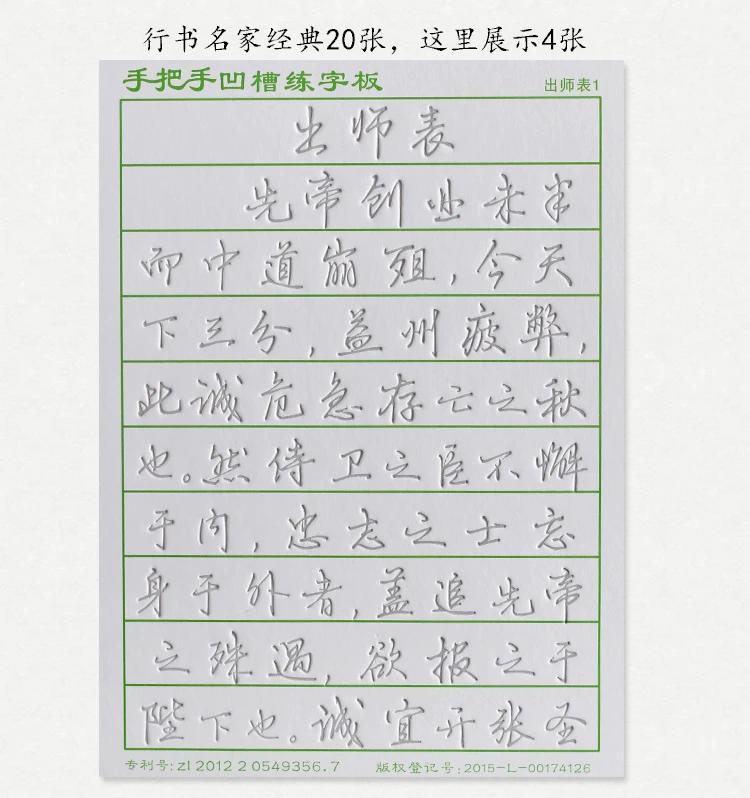 行书名家经典20张，这里展示4张
手把手凹槽练字板
出师表1
出师表
先帝创业未半
而中道崩殂，今天
下三分，益州疲弊，
此诚危急存亡之秋
也。然侍卫之臣不懈
于内，忠志之士忘
身于外者，盖追先帝
之殊遇，欲报之于
陛下也。诚宜开张圣
专利号:zl 2012 2 0549356.7
版权登记号:2015-L-00174126